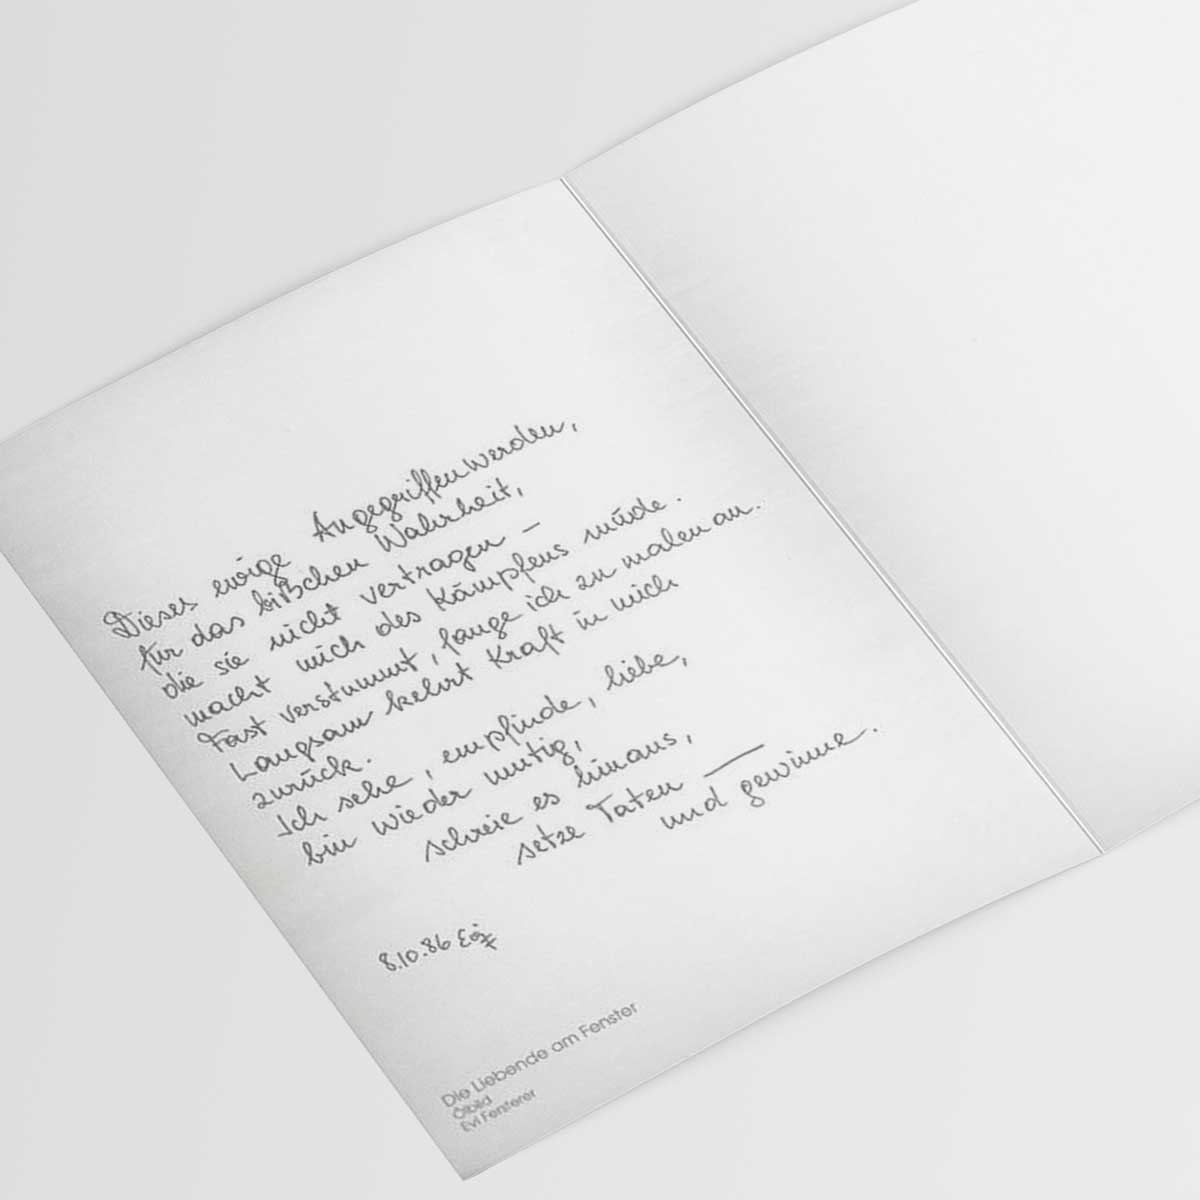 Dieses ewige Angegriffenwerden,
für das bißchen Wahrheit,
die sie nicht vertragen –
macht mich des Kämpfens müde.
Fast verstummt, fange ich zu malen an.
Langsam kehrt Kraft in mich
zurück.
Ich sehe, empfinde, liebe,
bin wieder mutig,
schreie es hinaus,
setze Taten —
und gewinne.
8.10.86
Die Liebende am Fenster
Ölbild
Evi Fersterer